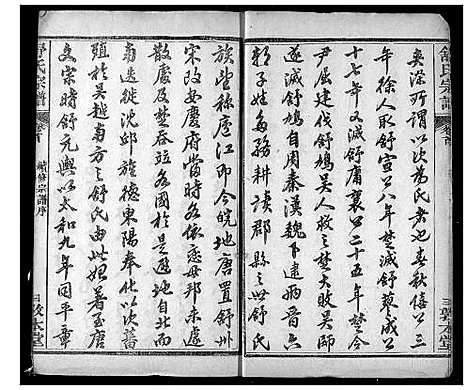 舒氏宗譜 卷首
敦本堂
所謂以次為氏者也春秋僖公三
年徐人取舒宣公八年楚滅舒蓼成公
十七年又滅舒庸襄公二十五年楚令
尹屈建伐舒鳩吳人救之楚大敗吳師
遂滅舒鳩自周秦漢魏下逮兩晉
子姓多務耕讀郡縣之世舒
族望稱廬江即今皖地唐置舒州
宋改安慶府當時各侯母邦未遽
散處及楚吞竝各國於是避地自北而
南遂徙沈邱旌德東陽奉化以次蕃
殖於吳越南方之舒氏由此始著至唐
文宗時舒元輿以太和九年同平章
舒氏宗譜 卷首 續修宗譜序
敦本堂